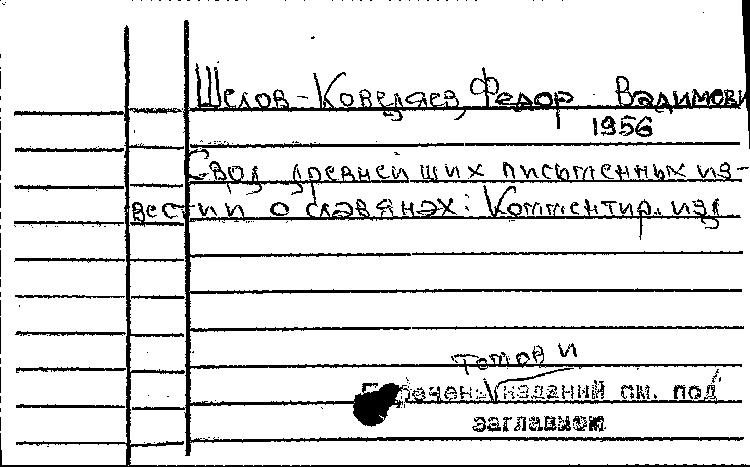 Шелов-Коведяев, Федор Вадимови
1956
Свод древнейших письменных из-
вестии о славянах: Комментир. изд
томов и
Перечень изданий см. под
заглавием